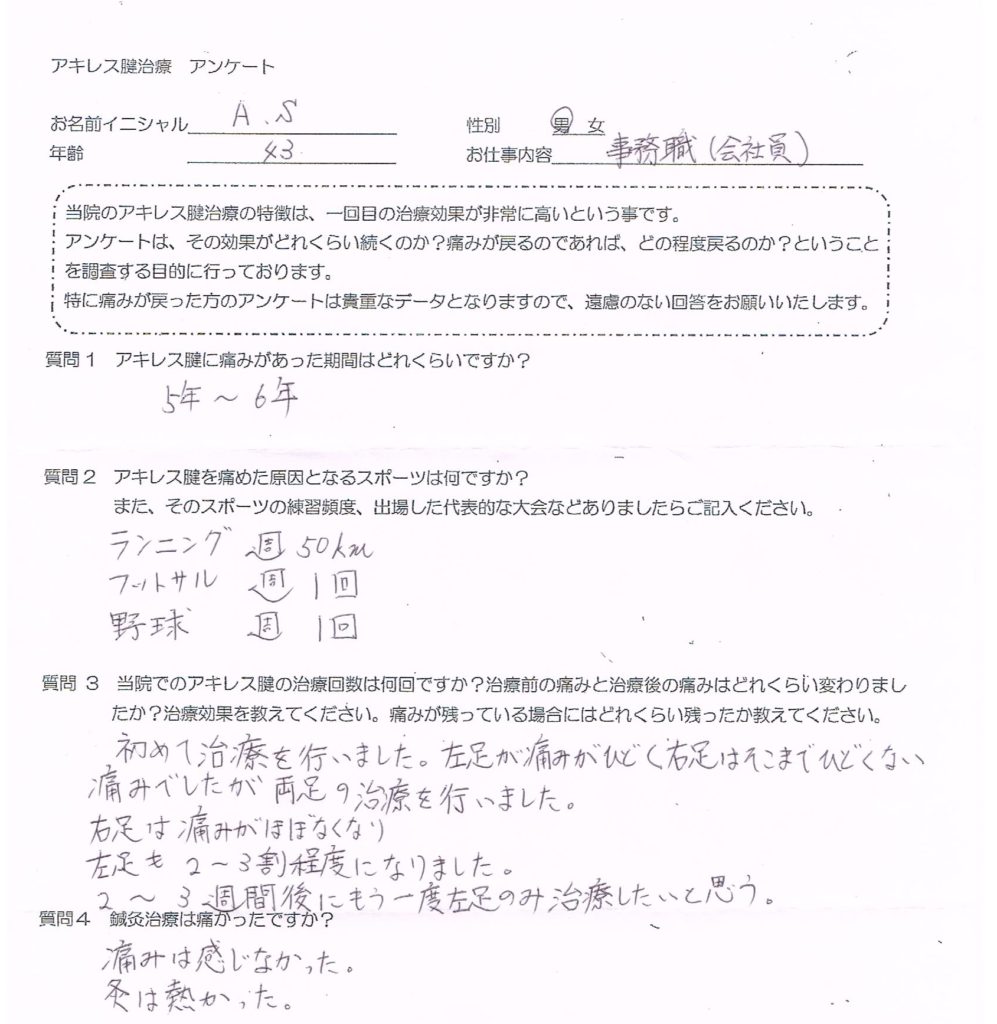 アキレス腱治療　アンケート
お名前イニシャル A.S　性別　男　女
年齢 43　お仕事内容 事務職(会社員)
当院のアキレス腱治療の特徴は、一回目の治療効果が非常に高いという事です。
アンケートは、その効果がどれくらい続くのか？痛みが戻るのであれば、どの程度戻るのか？ということ
を調査する目的に行っております。
特に痛みが戻った方のアンケートは貴重なデータとなりますので、遠慮のない回答をお願いいたします。
質問１　アキレス腱に痛みがあった期間はどれくらいですか？
5年～6年
質問２　アキレス腱を痛めた原因となるスポーツは何ですか？
また、そのスポーツの練習頻度、出場した代表的な大会などありましたらご記入ください。
ランニング　週 50km
フットサル　週 1回
野球　週 1回
質問３　当院でのアキレス腱の治療回数は何回ですか？治療前の痛みと治療後の痛みはどれくらい変わりまし
たか？治療効果を教えてください。痛みが残っている場合にはどれくらい残ったか教えてください。
初めて治療を行いました。左足が痛みがひどく右足はそこまでひどくない
痛みでしたが両足の治療を行いました。
右足は痛みがほぼなくなり
左足も2～3割程度になりました。
2～3週間後にもう一度左足のみ治療したいと思う。
質問４　鍼灸治療は痛かったですか？
痛みは感じなかった。
灸は熱かった。